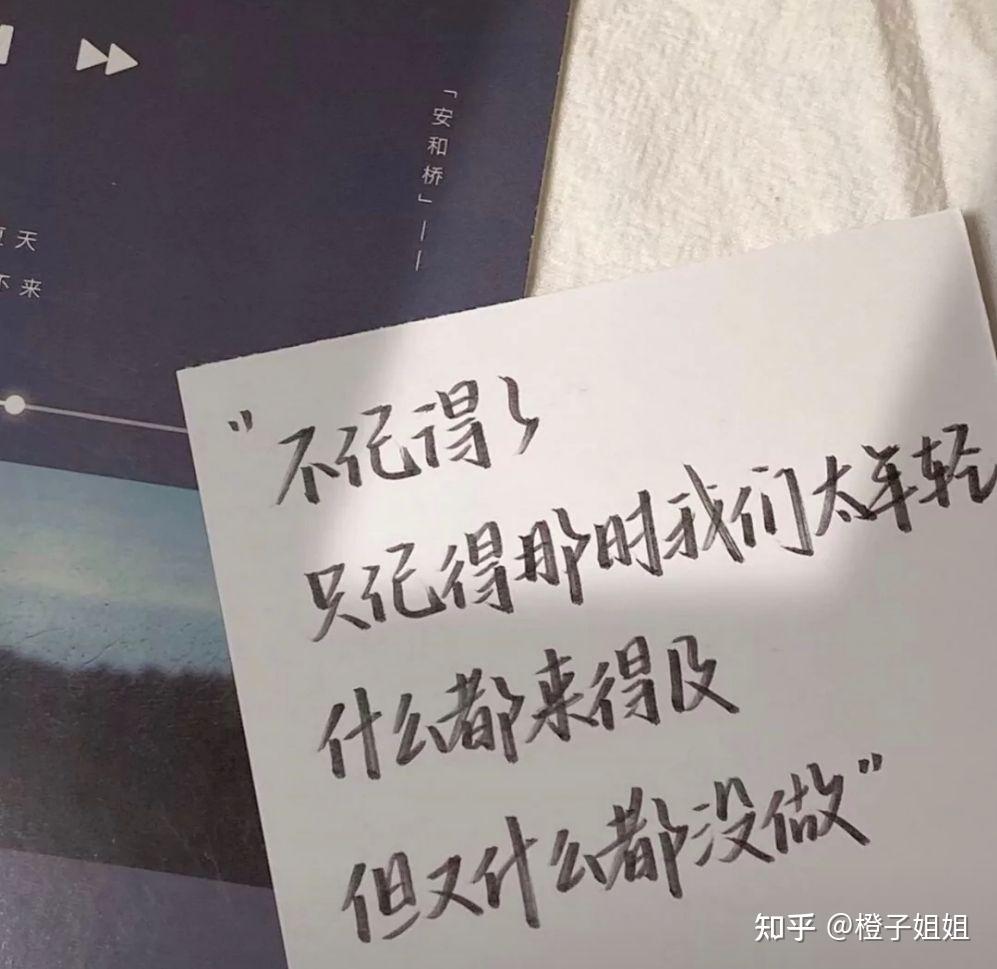 「安和桥」——
夏天
不来
"不记得了
只记得那时我们太年轻
什么都来得及
但又什么都没做"
知乎 @橙子姐姐